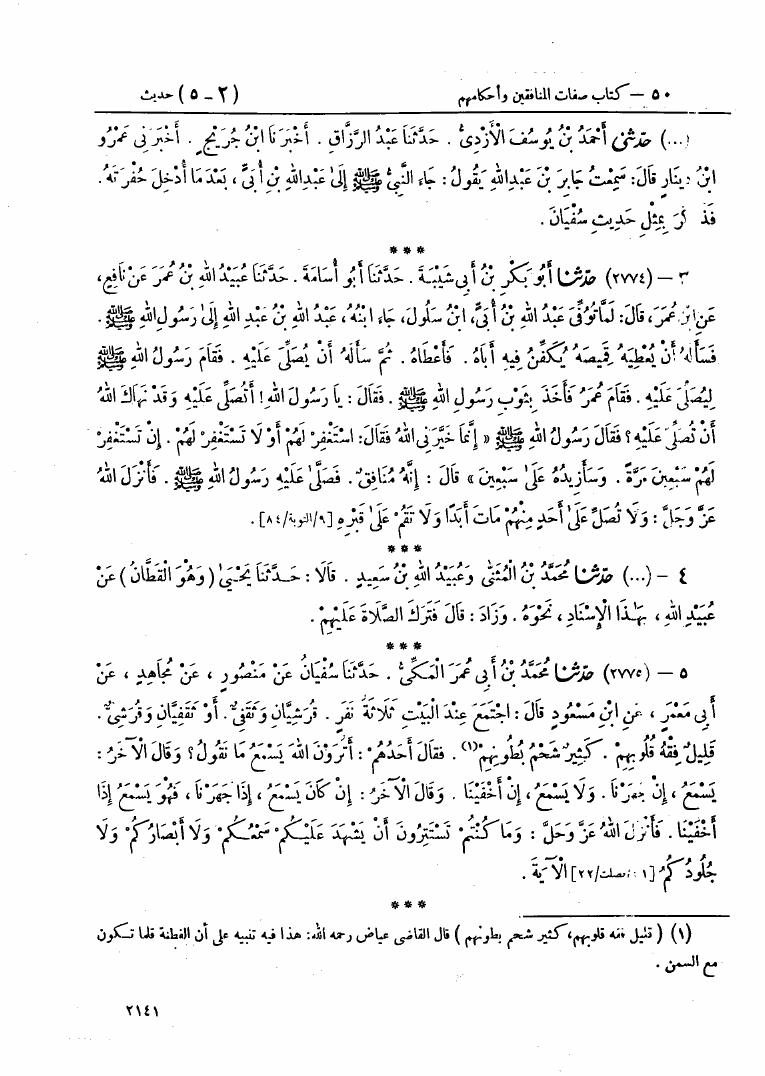 ٥٠ — كتاب صفات المنافقين وأحكامهم (٢ – ٥) حديث
(...) حَدَّثَنِي أَحْمَدُ بْنُ يُوسُفَ الْأَزْدِيُّ . حَدَّثَنَا عَبْدُ الرَّزَّاقِ . أَخْبَرَنَا ابْنُ جُرَيْجٍ . أَخْبَرَنِي عَمْرُو
ابْنُ دِينَارٍ قَالَ: سَمِعْتُ جَابِرَ بْنَ عَبْدِاللهِ يَقُولُ: جَاءَ النَّبِيُّ ﷺ إِلَىٰ عَبْدِاللهِ بْنِ أُبَيٍّ، بَعْدَمَا أُدْخِلَ حُفْرَتَهُ.
فَذَكَرَ بِمِثْلِ حَدِيثِ سُفْيَانَ .
***
٣ – (٢٧٧٤) حَدَّثَنَا أَبُو بَكْرِ بْنُ أَبِي شَيْبَةَ . حَدَّثَنَا أَبُو أُسَامَةَ . حَدَّثَنَا عُبَيْدُ اللهِ بْنُ عُمَرَ عَنْ نَافِعٍ،
عَنِ ابْنِ عُمَرَ، قَالَ: لَمَّا تُوُفِّيَ عَبْدُ اللهِ بْنُ أُبَيٍّ، ابْنُ سَلُولَ، جَاءَ ابْنُهُ، عَبْدُ اللهِ بْنُ عَبْدِ اللهِ إِلَىٰ رَسُولِ اللهِ ﷺ .
فَسَأَلَهُ أَنْ يُعْطِيَهُ قَمِيصَهُ يُكَفِّنُ فِيهِ أَبَاهُ . فَأَعْطَاهُ . ثُمَّ سَأَلَهُ أَنْ يُصَلِّيَ عَلَيْهِ . فَقَامَ رَسُولُ اللهِ ﷺ
لِيُصَلِّيَ عَلَيْهِ . فَقَامَ عُمَرُ فَأَخَذَ بِثَوْبِ رَسُولِ اللهِ ﷺ . فَقَالَ: يَا رَسُولَ اللهِ! أَتُصَلِّي عَلَيْهِ وَقَدْ نَهَاكَ اللهُ
أَنْ تُصَلِّيَ عَلَيْهِ؟ فَقَالَ رَسُولُ اللهِ ﷺ « إِنَّمَا خَيَّرَنِي اللهُ فَقَالَ: اسْتَغْفِرْ لَهُمْ أَوْ لَا تَسْتَغْفِرْ لَهُمْ . إِنْ تَسْتَغْفِرْ
لَهُمْ سَبْعِينَ مَرَّةً . وَسَأَزِيدُهُ عَلَىٰ سَبْعِينَ » قَالَ : إِنَّهُ مُنَافِقٌ . فَصَلَّىٰ عَلَيْهِ رَسُولُ اللهِ ﷺ . فَأَنْزَلَ اللهُ
عَزَّ وَجَلَّ : وَلَا تُصَلِّ عَلَىٰ أَحَدٍ مِنْهُمْ مَاتَ أَبَدًا وَلَا تَقُمْ عَلَىٰ قَبْرِهِ [٩/التوبة/٨٤] .
***
٤ – (...) حَدَّثَنَا مُحَمَّدُ بْنُ الْمُثَنَّىٰ وَعُبَيْدُ اللهِ بْنُ سَعِيدٍ . قَالَا : حَدَّثَنَا يَحْيَىٰ (وَهُوَ الْقَطَّانُ) عَنْ
عُبَيْدِ اللهِ ، بِهَـٰذَا الْإِسْنَادِ، نَحْوَهُ . وَزَادَ : قَالَ فَتَرَكَ الصَّلَاةَ عَلَيْهِمْ .
***
٥ – (٢٧٧٥) حَدَّثَنَا مُحَمَّدُ بْنُ أَبِي عُمَرَ الْمَكِّيُّ . حَدَّثَنَا سُفْيَانُ عَنْ مَنْصُورٍ ، عَنْ مُجَاهِدٍ ، عَنْ
أَبِي مَعْمَرٍ ، عَنِ ابْنِ مَسْعُودٍ قَالَ : اجْتَمَعَ عِنْدَ الْبَيْتِ ثَلَاثَةُ نَفَرٍ . قُرَشِيَّانِ وَثَقَفِيٌّ . أَوْ ثَقَفِيَّانِ وَقُرَشِيٌّ .
قَلِيلٌ فِقْهُ قُلُوبِهِمْ . كَثِيرٌ شَحْمُ بُطُونِهِمْ (١) . فَقَالَ أَحَدُهُمْ : أَتُرَوْنَ اللهَ يَسْمَعُ مَا نَقُولُ؟ وَقَالَ الْآخَرُ :
يَسْمَعُ ، إِنْ جَهَرْنَا . وَلَا يَسْمَعُ، إِنْ أَخْفَيْنَا . وَقَالَ الْآخَرُ : إِنْ كَانَ يَسْمَعُ ، إِذَا جَهَرْنَا ، فَهُوَ يَسْمَعُ إِذَا
أَخْفَيْنَا . فَأَنْزَلَ اللهُ عَزَّ وَجَلَّ : وَمَا كُنْتُمْ تَسْتَتِرُونَ أَنْ يَشْهَدَ عَلَيْكُمْ سَمْعُكُمْ وَلَا أَبْصَارُكُمْ وَلَا
جُلُودُكُمْ [٤١/فصلت/٢٢] الْآيَةَ .
***
(١) ( قليل فقه قلوبهم، كثير شحم بطونهم ) قال القاضي عياض رحمه الله: هذا فيه تنبيه على أن الفطنة قلما تكون
مع السمن .
٢١٤١